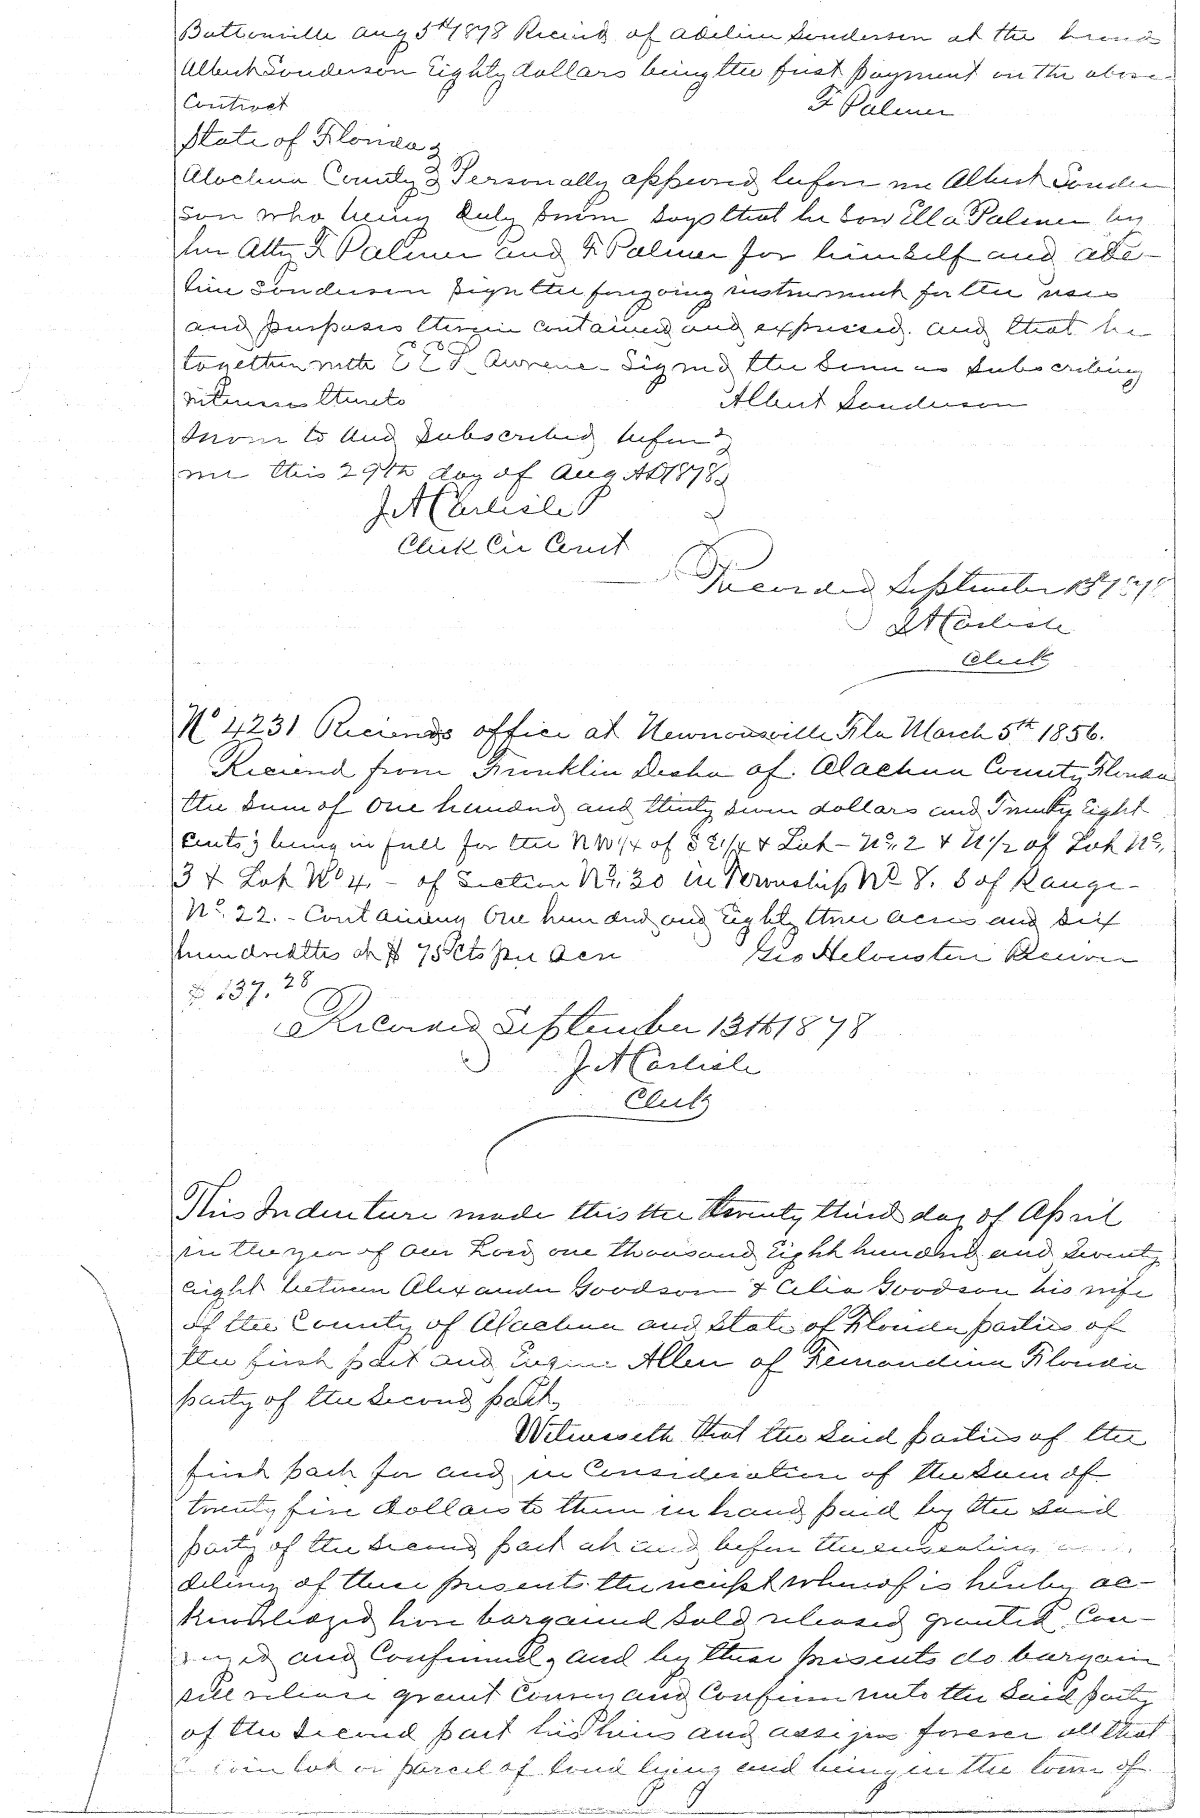 Battonville Aug 5th 1878 Received of Adeline Sanderson at the hands
Albert Sanderson Eighty dollars being the first payment on the above
Contract F Palmer
State of Florida
Alachua County Personally appeared before me Albert Sander
son who being duly sworn says that he saw Ella Palmer by
her Atty F Palmer and F Palmer for himself and Ade-
line Sanderson sign the foregoing instrument for the uses
and purposes therein contained and expressed. and that he
together with E E Lawrence Signed the same as Subscribing
witnesses thereto Albert Sanderson
Sworn to and Subscribed before
me this 29th day of Aug AD 1878
J A Carlisle
Clerk Cir Court
Recorded September 13th 1878
J A Carlisle
Clerk
No 4231 Receivers office at Newnansville Fla March 5th 1856.
Received from Franklin Desha of Alachua County Florida
the Sum of One hundred and thirty seven dollars and Twenty Eight
cents; being in full for the NW 1/4 of SE 1/4 & Lot - No. 2 & N 1/2 of Lot No.
3 & Lot No 4. - of Section No. 30 in Township No 8. S of Range -
No. 22. - Containing One hundred and Eighty three acres and Six
hundredths at $ 75 cts per Acre Geo Helvenston Receiver
$ 137.28
Recorded September 13th 1878
J A Carlisle
Clerk
This Indenture made this the twenty third day of April
in the year of our Lord one thousand Eight hundred and Seventy
eight between Alexander Goodson & Celia Goodson his wife
of the County of Alachua and State of Florida parties of
the first part and Eugene Allen of Fernandina Florida
party of the Second part,
Witnesseth that the Said parties of the
first part for and in Consideration of the Sum of
twenty five dollars to them in hand paid by the Said
party of the Second part at and before the ensealing and
delivery of these presents the receipt whereof is hereby ac-
knowledged have bargained Sold released granted Con-
veyed and Confirmed, and by these presents do bargain
sell release grant Convey and Confirm unto the Said party
of the Second part his heirs and assigns forever all that
certain lot or parcel of land lying and being in the town of